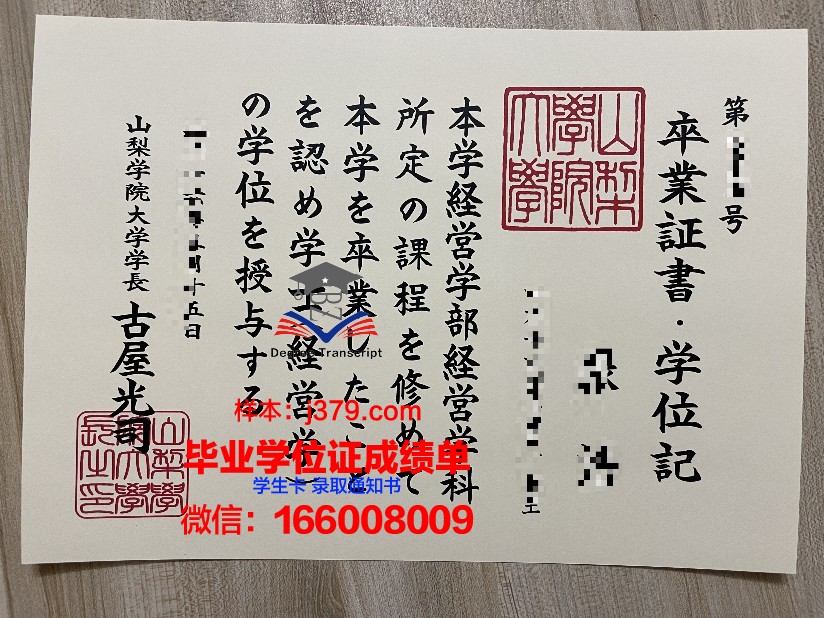 第
号
卒業証書・学位記
山梨
學院
大學
本学経営学部経営学科
所定の課程を修めて
本学を卒業したこと
を認め学士（経営学）
の学位を授与する
月十五日
山梨学院大学学長 古屋光司
山梨學
院大學
長之印
Degree Transcript
样本：j379.com
毕业学位证成绩单
学生卡 录取通知书
微信：166008009